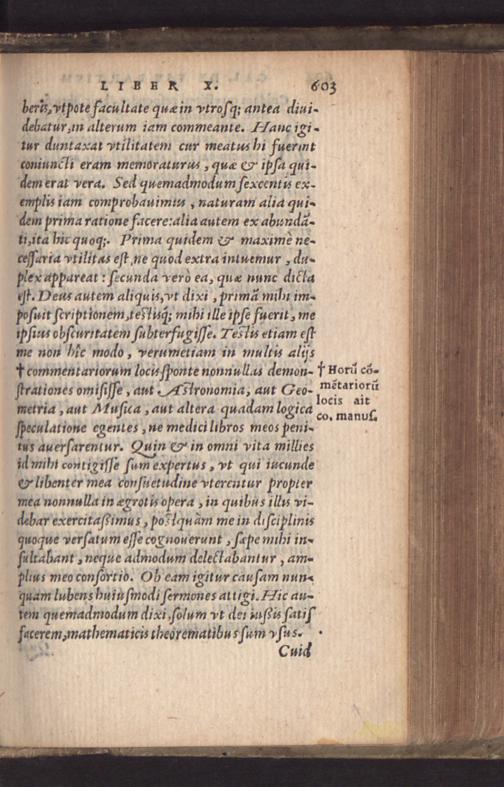 LIBER X. 603
beris, vtpote facultate quæ in vtrosq; antea diui-
debatur, in alterum iam commeante. Hanc igi-
tur duntaxat vtilitatem cur meatus hi fuerint
coniuncti eram memoraturus, quæ & ipsa qui-
dem erat vera. Sed quemadmodum sexcentis ex-
emplis iam comprobauimus, naturam alia qui-
dem prima ratione facere: alia autem ex abundā-
ti, ita hic quoq;. Prima quidem & maximè ne-
cessaria vtilitas est, ne quod extra intuemur, du-
plex appareat: secunda verò ea, quæ nunc dicta
est. Deus autem aliquis, vt dixi, primā mihi im-
posuit scriptionem, testisq; mihi ille ipse fuerit, me
ipsius obscuritatem subterfugisse. Testis etiam est
me non hîc modo, verumetiam in multis alijs
† commentariorum locis sponte nonnullas demon-
strationes omisisse, aut Astronomia, aut Geo-
metria, aut Musica, aut altera quadam logica
speculatione egentes, ne medici libros meos peni-
tus auersarentur. Quin & in omni vita millies
id mihi contigisse sum expertus, vt qui iucunde
& libenter mea consuetudine vterentur propter
mea nonnulla in ægrotis opera, in quibus illis vi-
debar exercitatissimus, postquàm me in disciplinis
quoque versatum esse cognouerunt, sæpe mihi in-
sultabant, neque admodum delectabantur, am-
plius meo consortio. Ob eam igitur causam nun-
quam lubens huiusmodi sermones attigi. Hic au-
tem quemadmodum dixi, solum vt dei iussis satis
facerem, mathematicis theorematibus sum vsus.
Cuid
† Horū cō-
mētariorū
locis ait
co. manus.